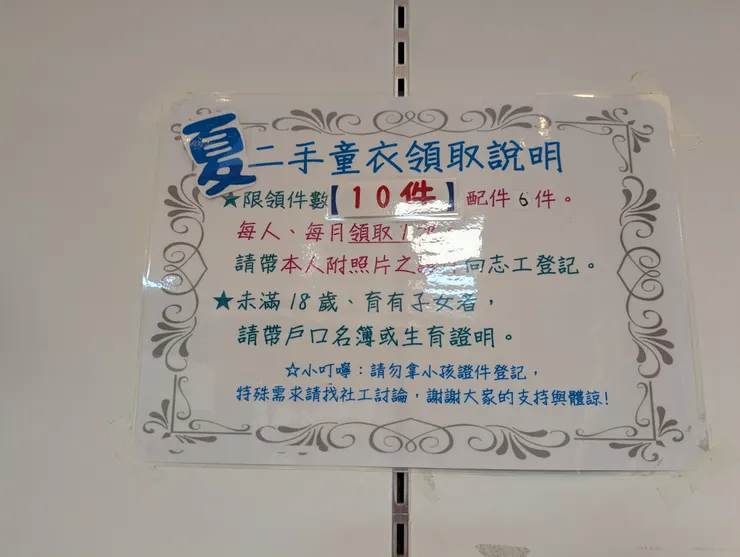 夏 二手童衣領取說明
★限領件數【10件】 配件6件。
每人、每月領取1
請帶本人附照片之 向志工登記。
★未滿18歲、育有子女者,
請帶戶口名簿或生育證明。
☆小叮嚀:請勿拿小孩證件登記,
特殊需求請找社工討論,謝謝大家的支持與體諒!